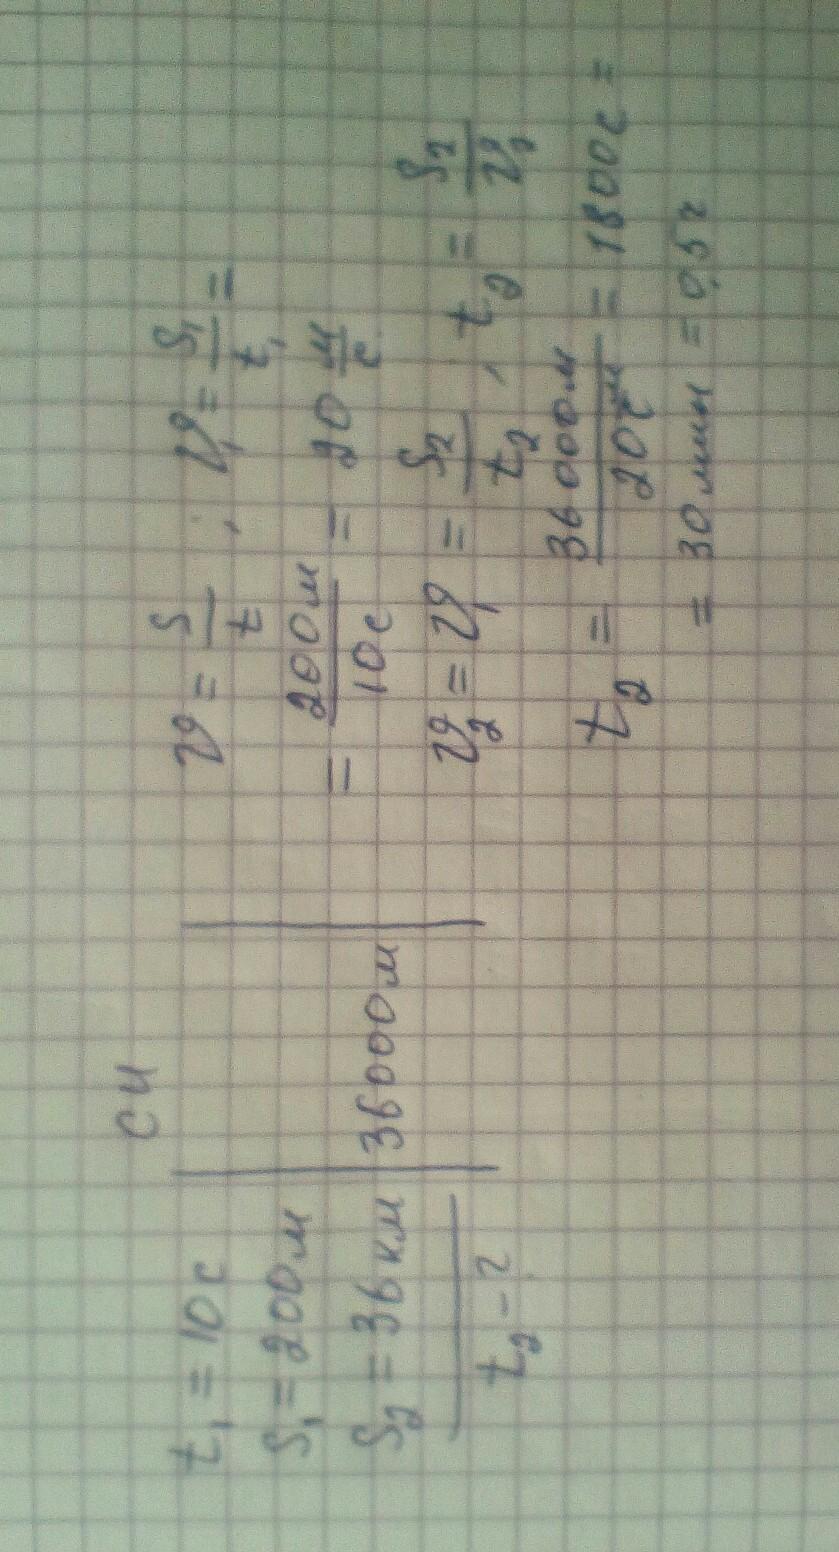 СИ
t₁ = 10 с
S₁ = 200 м
S₂ = 36 км | 36000 м
t₂ - ?
υ = S/t ; υ₁ = S₁/t₁ =
= 200 м/10 с = 20 м/с
υ₂ = υ₁ = S₂/t₂ , t₂ = S₂/υ₁
t₂ = 36000 м/20 м/с = 1800 с =
= 30 мин = 0,5 ч